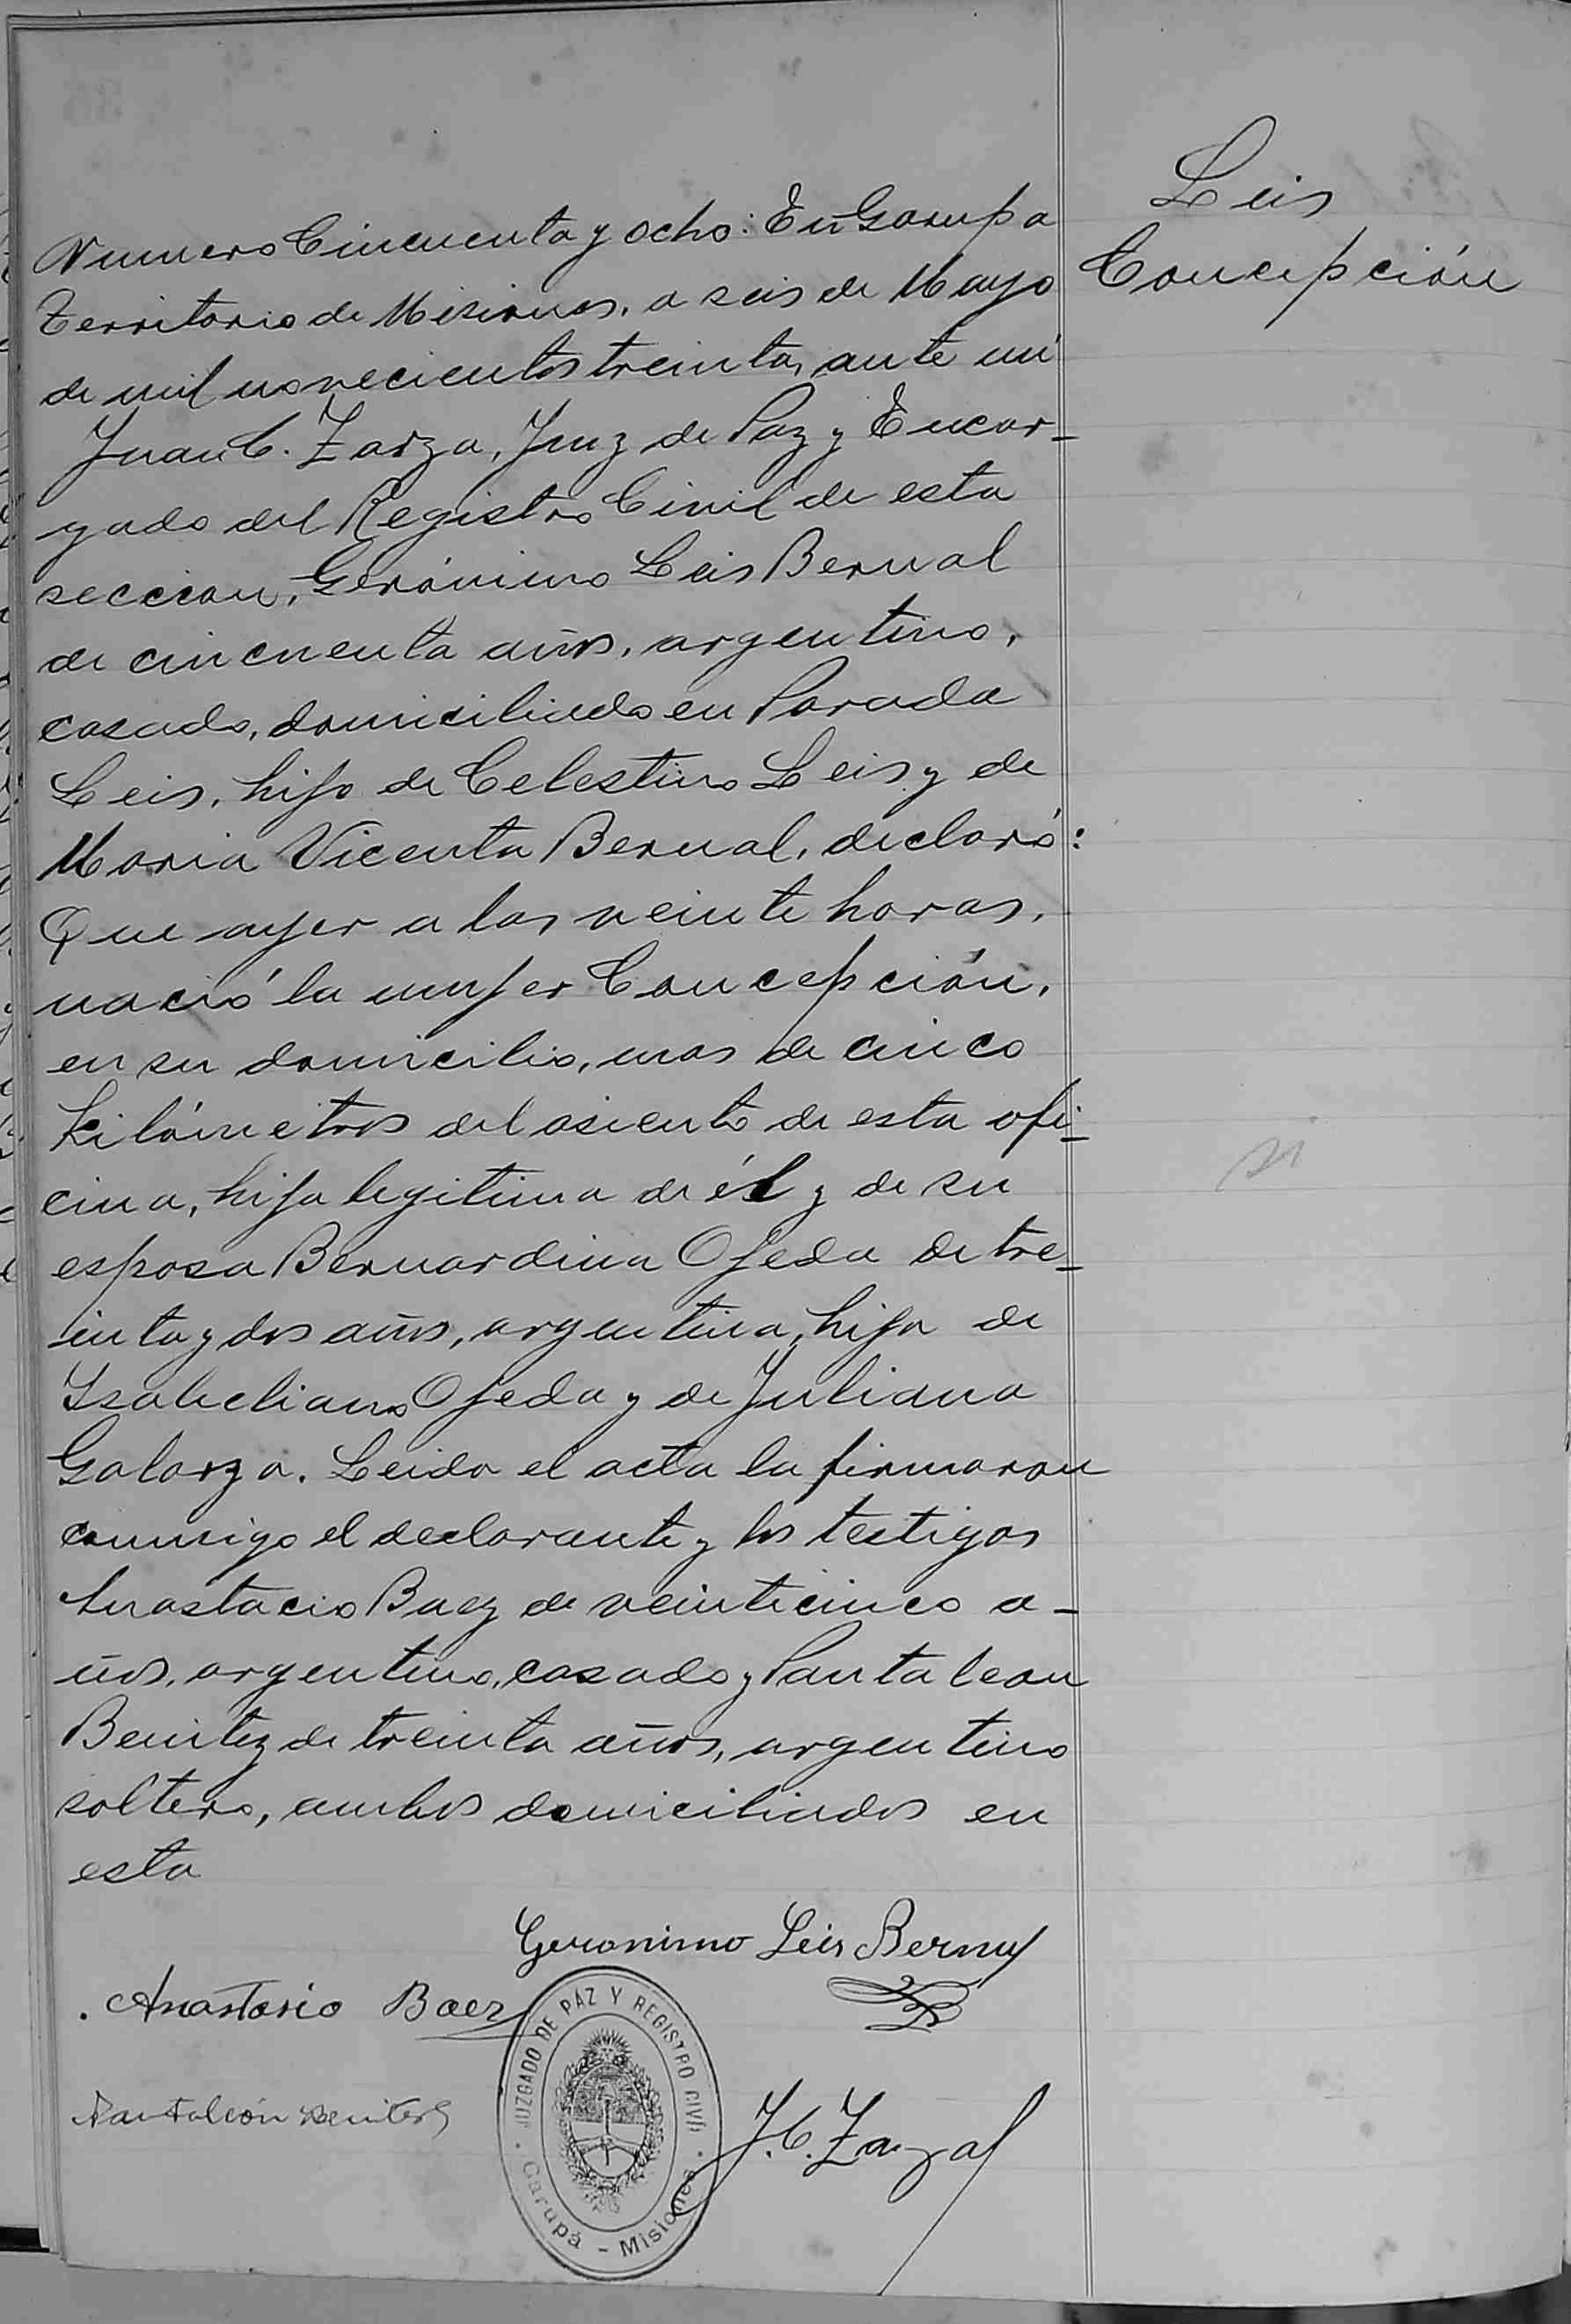 Leis
Concepción
Numero Cincuenta y ocho: En Garupa
Territorio de Misiones, a seis de Mayo
de mil novecientos treinta, ante mi
Juan C. Zarza, Juez de Paz y Encar-
gado del Registro Civil de esta
seccion, Gerónimo Leis Bernal
de cincuenta años, argentino,
casado, domiciliado en Parada
Leis, hijo de Celestino Leis y de
Maria Vicenta Bernal, declaró:
Que ayer a las veinte horas,
nació la mujer Concepción,
en su domicilio, mas de cinco
kilómetros del asiento de esta ofi-
cina, hija legitima de él y de su
esposa Bernardina Ojeda de tre-
inta y dos años, argentina, hija de
Isabeliano Ojeda y de Juliana
Galarza. Leida el acta la firmaron
conmigo el declarante y los testigos
Anastacio Baez de veinticinco a-
ños, argentino, casado y Pantaleon
Benitez de treinta años, argentino
soltero, ambos domiciliados en
esta
Geronimo Leis Bernal
Anastasio Baez
Pantaleón Benitez
J. C. Zarza
JUZGADO DE PAZ Y REGISTRO CIVIL
Garupá - Misiones
si